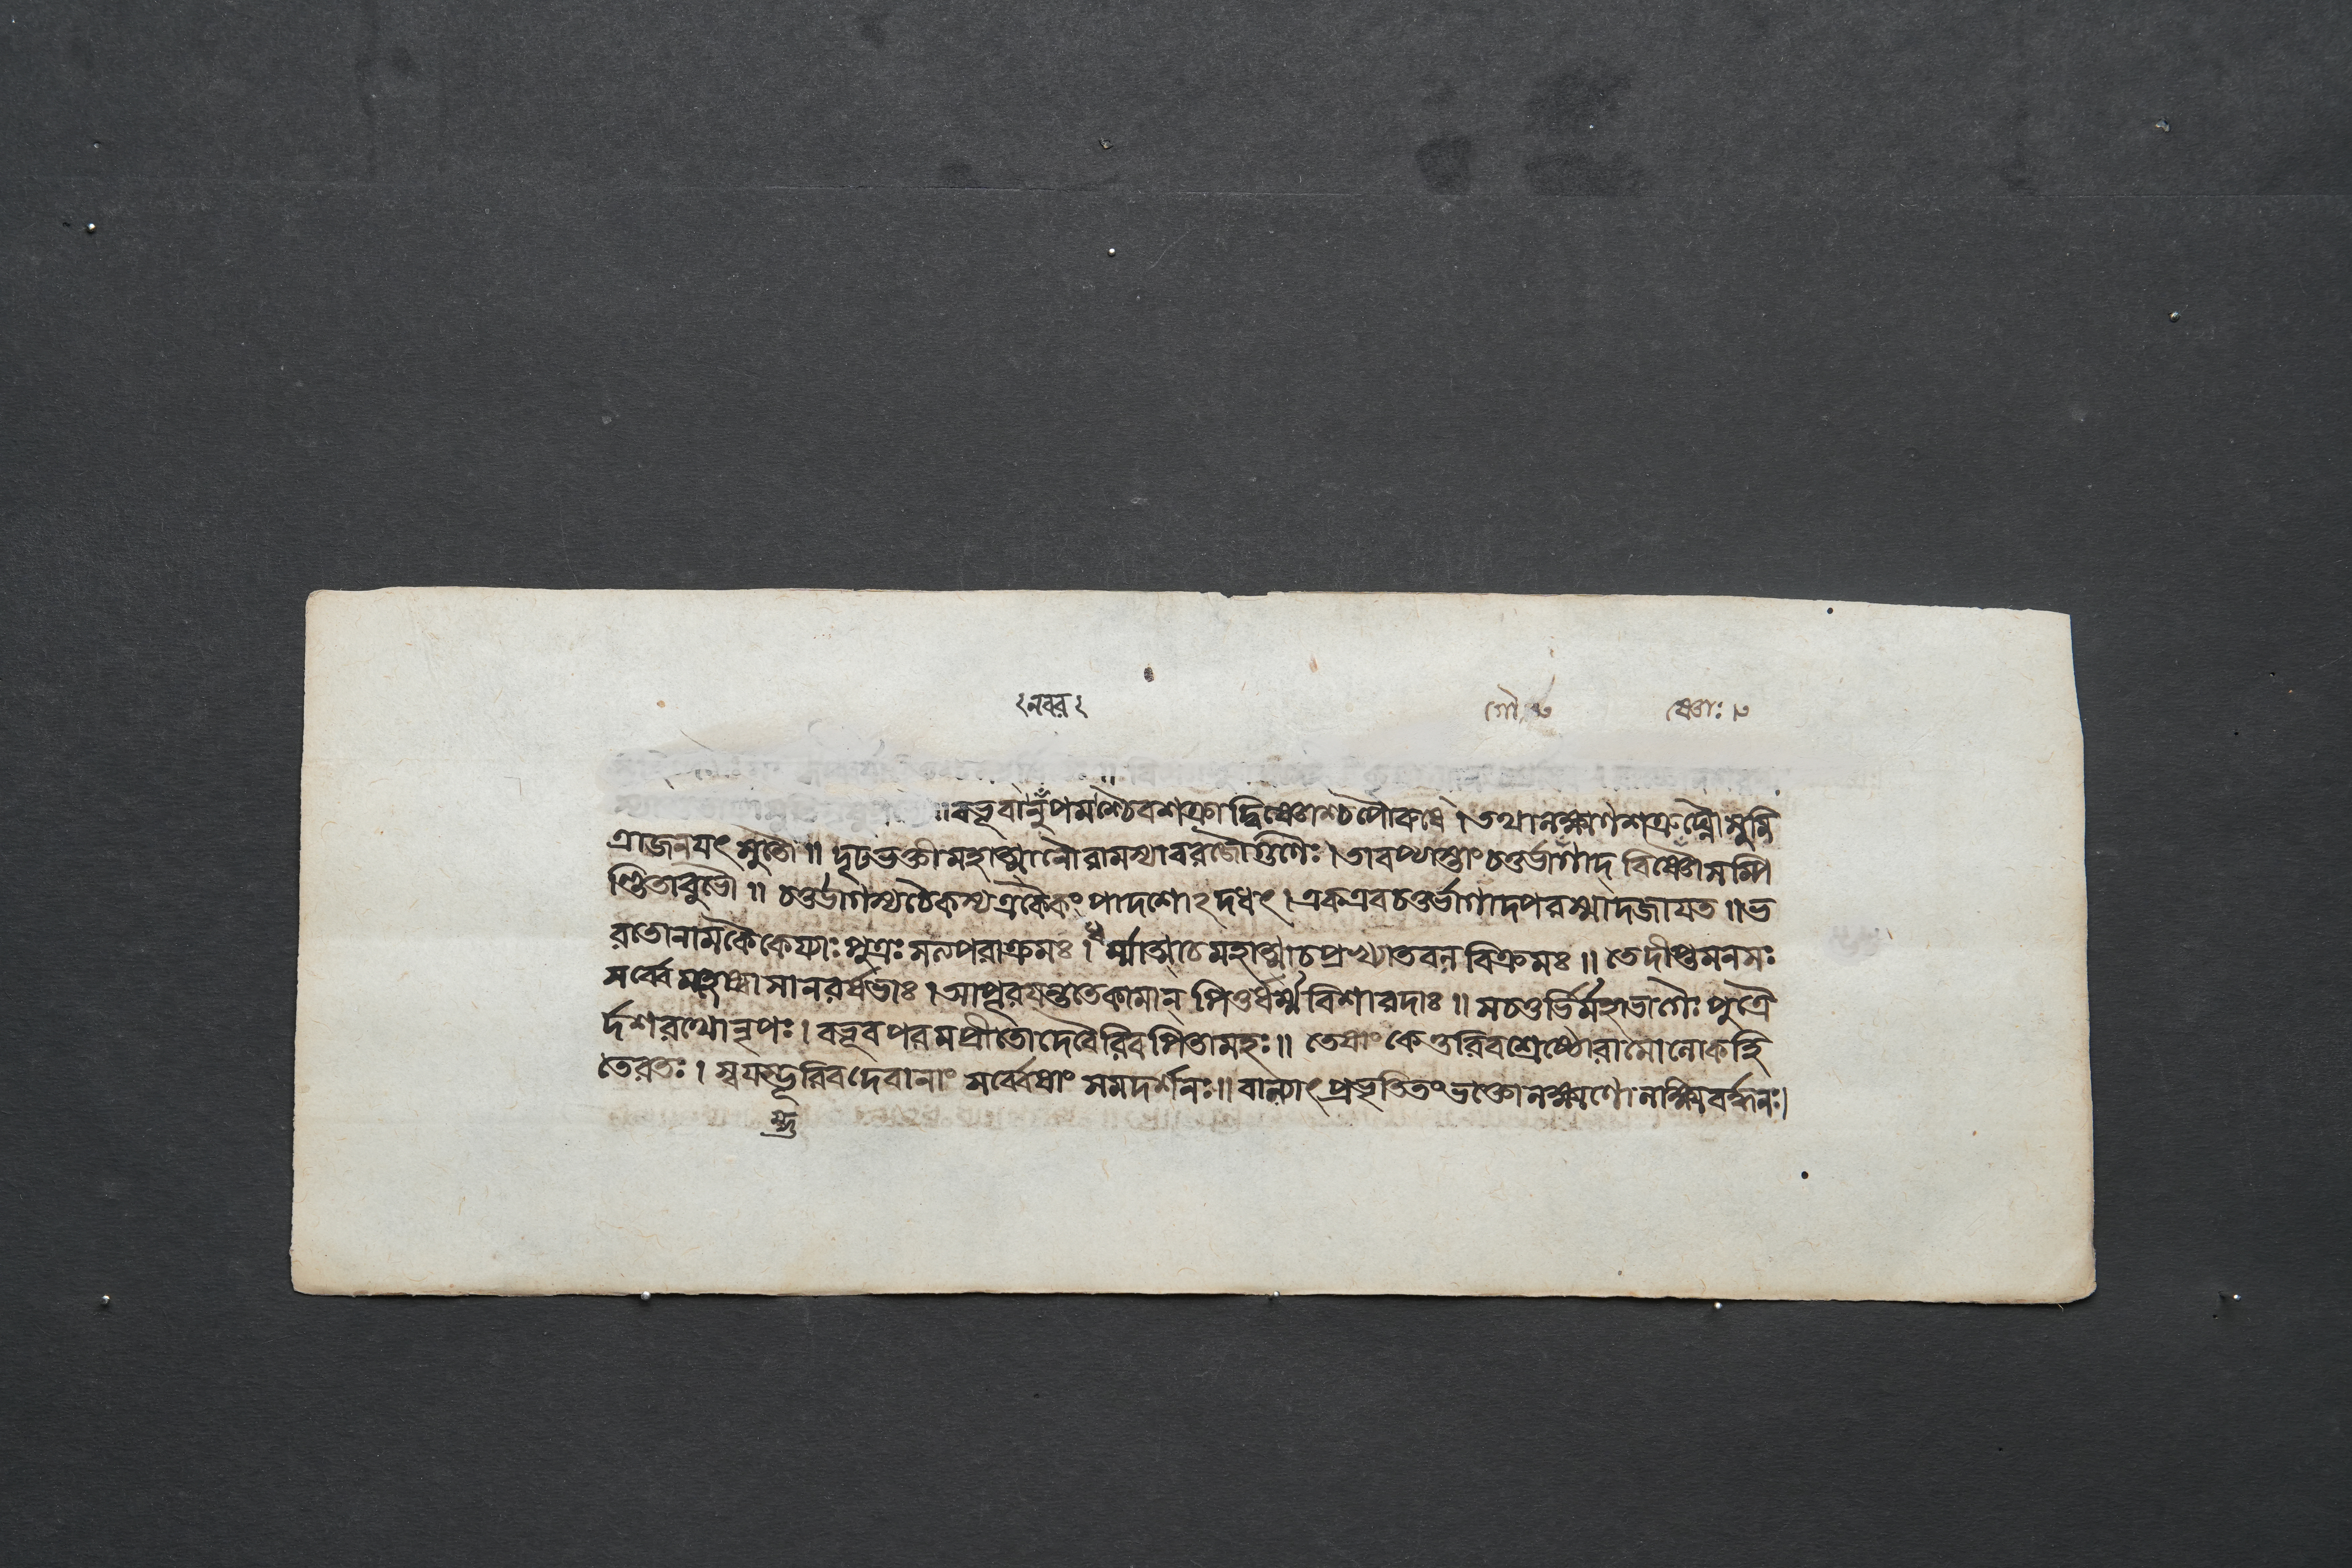 নবর
গৌ ৮ ষ্ণোঃ ৮
॥বভূবানুপমশ্চৈবশক্রাদ্বিষ্ণোশ্চপৌরুষে। তথালক্ষ্মণশত্রুঘ্নৌসুমি
ত্রাজনযৎ সুতৌ॥ দৃঢভক্তীমহাত্মানৌরামস্যাবরজৌগুণৈঃ। তাবপ্যাস্তাংচতুর্ভাগাদ্ বিষ্ণোঃসম্পি
ণ্ডিতাবুভৌ॥ চতুর্ভাগস্যচৈকস্যএকৈকং পাদশোঽদধৎ। একএবচতুর্ভাগাদপরস্মাদজাযত॥ ভ
রতোনামকৈকেয্যাঃ পুত্রঃ সত্যপরাক্রমঃ। ধর্ম্মাত্মাচমহাত্মাচপ্রখ্যাতবলবিক্রমঃ॥ তেদীপ্তমনসঃ
সর্ব্বেমহেষ্বাসানরর্ষভাঃ। আপূরযন্ততেকামান্ পিতুর্ধর্ম্মবিশারদাঃ॥ সচতুর্ভির্মহাভাগৈঃ পুত্রৈ
র্দশরথোনৃপঃ। বভূবপরমপ্রীতোদেবৈরিবপিতামহঃ॥ তেষাংকেতুরিবশ্রেষ্ঠোরামোলোকহি
তেরতঃ। স্বযম্ভূরিবদেবানাং সর্ব্বেষাং সমদর্শনঃ॥ বাল্যাৎপ্রভৃতিতংভক্তোলক্ষ্মণোলক্ষ্মিবর্দ্ধনঃ।
ম্ভূ